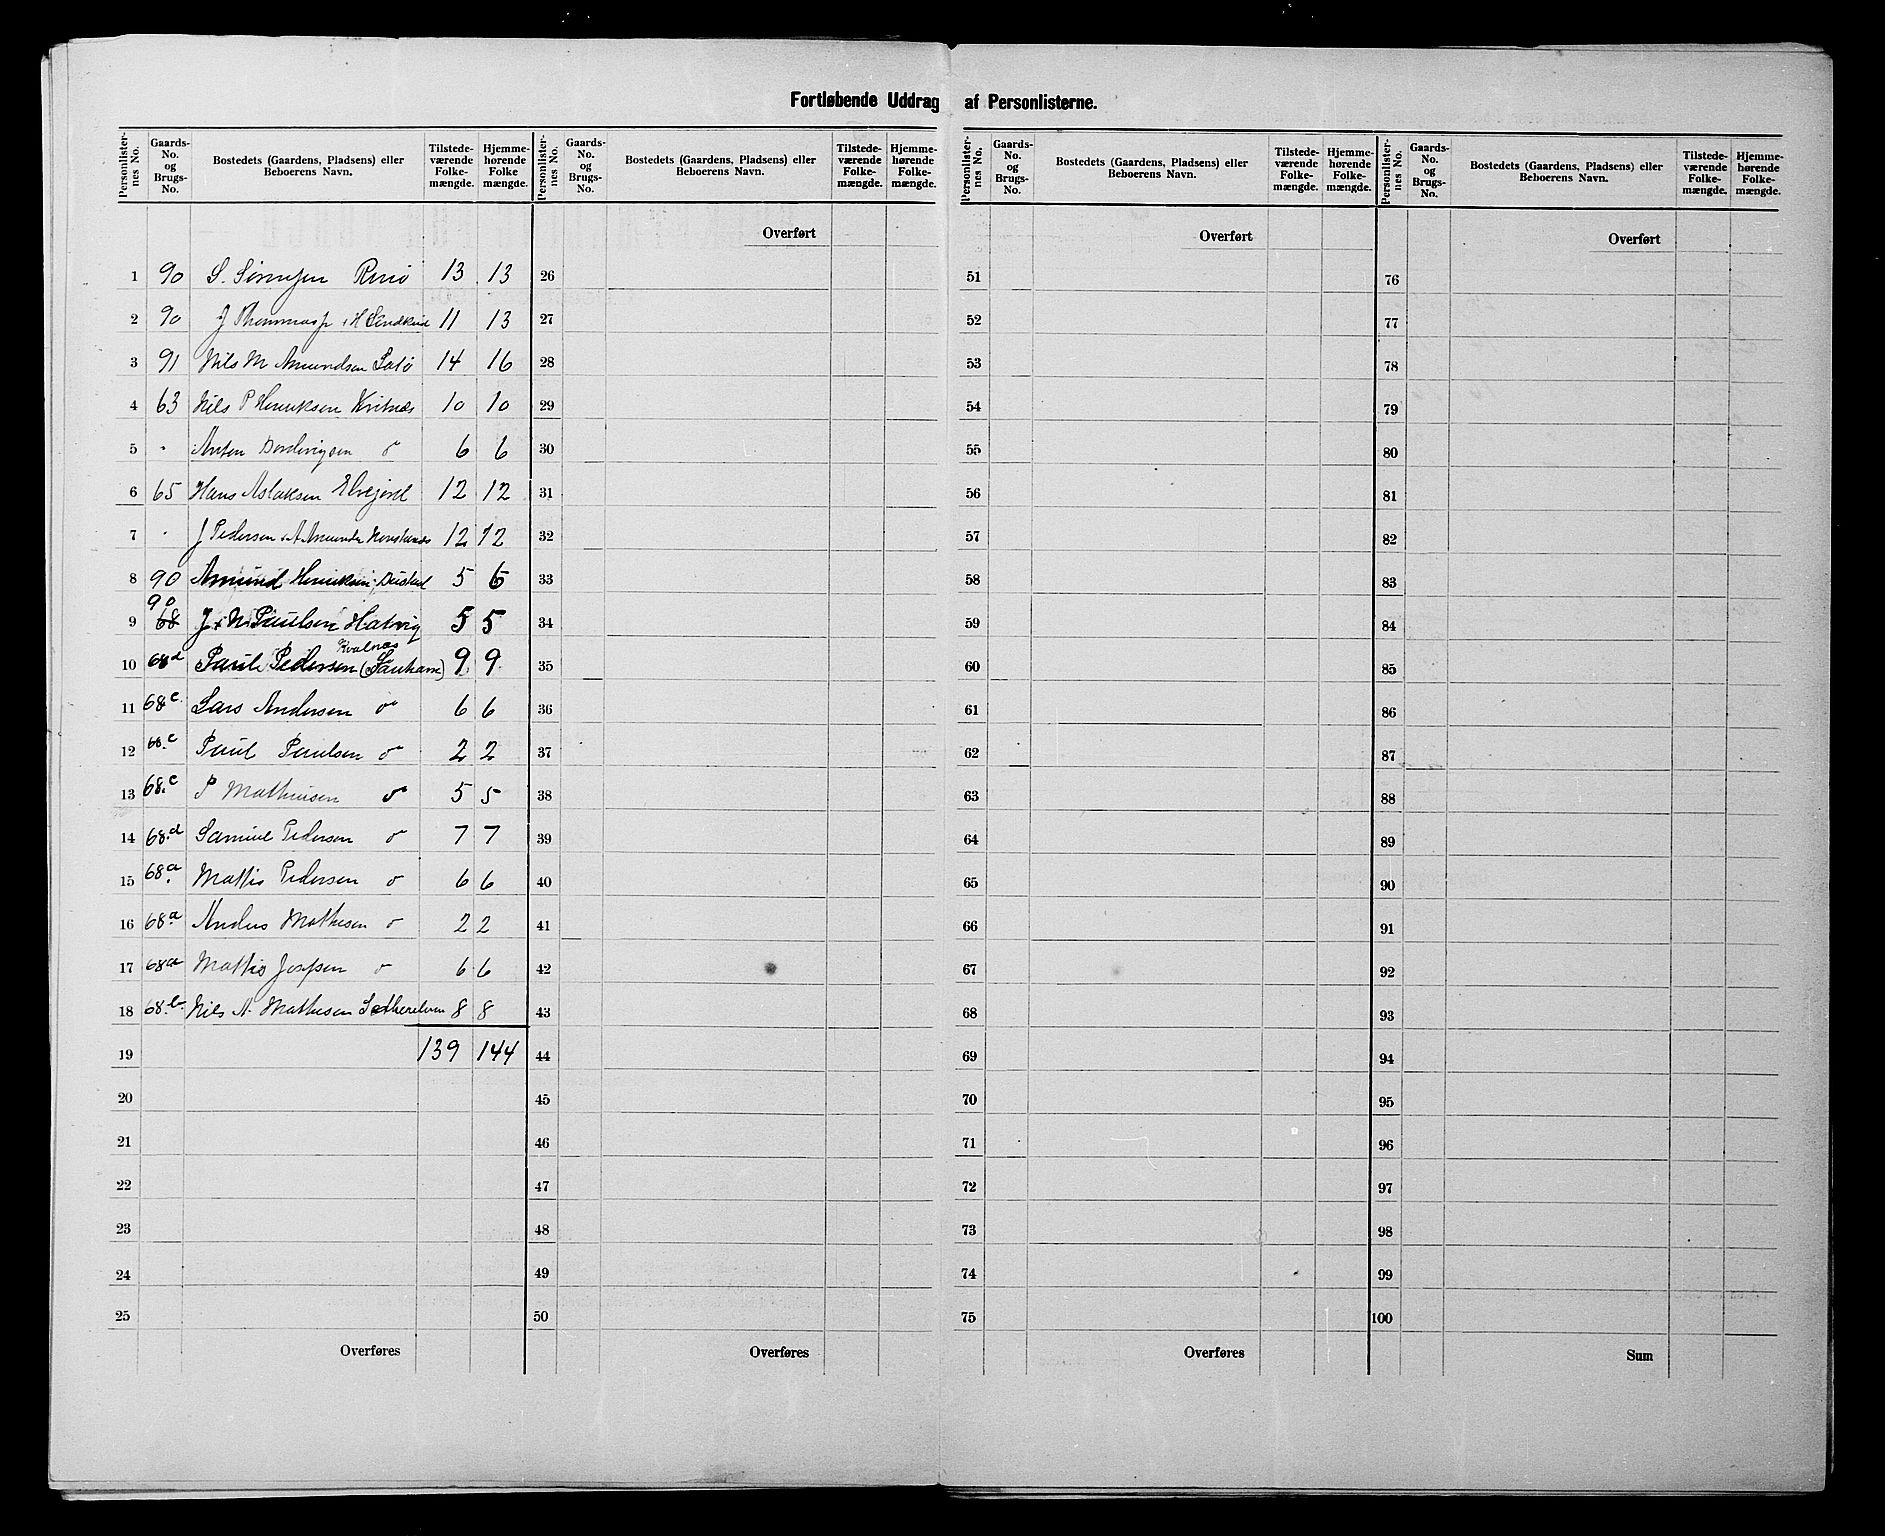 Fortløbende Uddrag af Personlisterne.
Personlister-nes No. | Gaards-No. og Brugs-No. | Bostedets (Gaardens, Pladsens) eller Beboerens Navn. | Tilstede-værende Folke-mængde. | Hjemme-hørende Folke mængde.
1 90 S. Sørensen Renø 13 13
2 90 J Thommasp 11 13
3 91 Nils M Amundsen Latø 14 16
4 63 Nils P Henriksen Kvitnæs 10 10
5 " Anton o 6 6
6 65 Hans Aslaksen Elvejord 12 12
7 " J Pedersen A Amunds 12 12
8 90 Amund Henriksen 5 6
90
9 68 J. N. Paulsen Hatvig 5 5
Kvalnæs
10 68d Paul Pedersen (Sauhavn) 9 9
11 68c Lars Andersen o 6 6
12 68c Paul Paulsen o 2 2
13 68c P Mathisen o 5 5
14 68d Samuel Pedersen o 7 7
15 68a Mattis Pedersen o 6 6
16 68a Anders Mathisen o 2 2
17 68a Mattis Josefsen o 6 6
18 68b Nils A. Mathisen 8 8
19 139 144
20
21
22
23
24
25
Overføres
Personlister-nes No. | Gaards-No. og Brugs-No. | Bostedets (Gaardens, Pladsens) eller Beboerens Navn. | Tilstede-værende Folke-mængde. | Hjemme-hørende Folke-mængde.
Overført
26
27
28
29
30
31
32
33
34
35
36
37
38
39
40
41
42
43
44
45
46
47
48
49
50
Overføres
Personlister-nes No. | Gaards-No. og Brugs-No. | Bostedets (Gaardens, Pladsens) eller Beboerens Navn. | Tilstede-værende Folke-mængde. | Hjemme-hørende Folke-mængde.
Overført
51
52
53
54
55
56
57
58
59
60
61
62
63
64
65
66
67
68
69
70
71
72
73
74
75
Overføres
Personlister-nes No. | Gaards-No. og Brugs-No. | Bostedets (Gaardens, Pladsens) eller Beboerens Navn. | Tilstede-værende Folke-mængde. | Hjemme-hørende Folke-mængde.
Overført
76
77
78
79
80
81
82
83
84
85
86
87
88
89
90
91
92
93
94
95
96
97
98
99
100
Sum